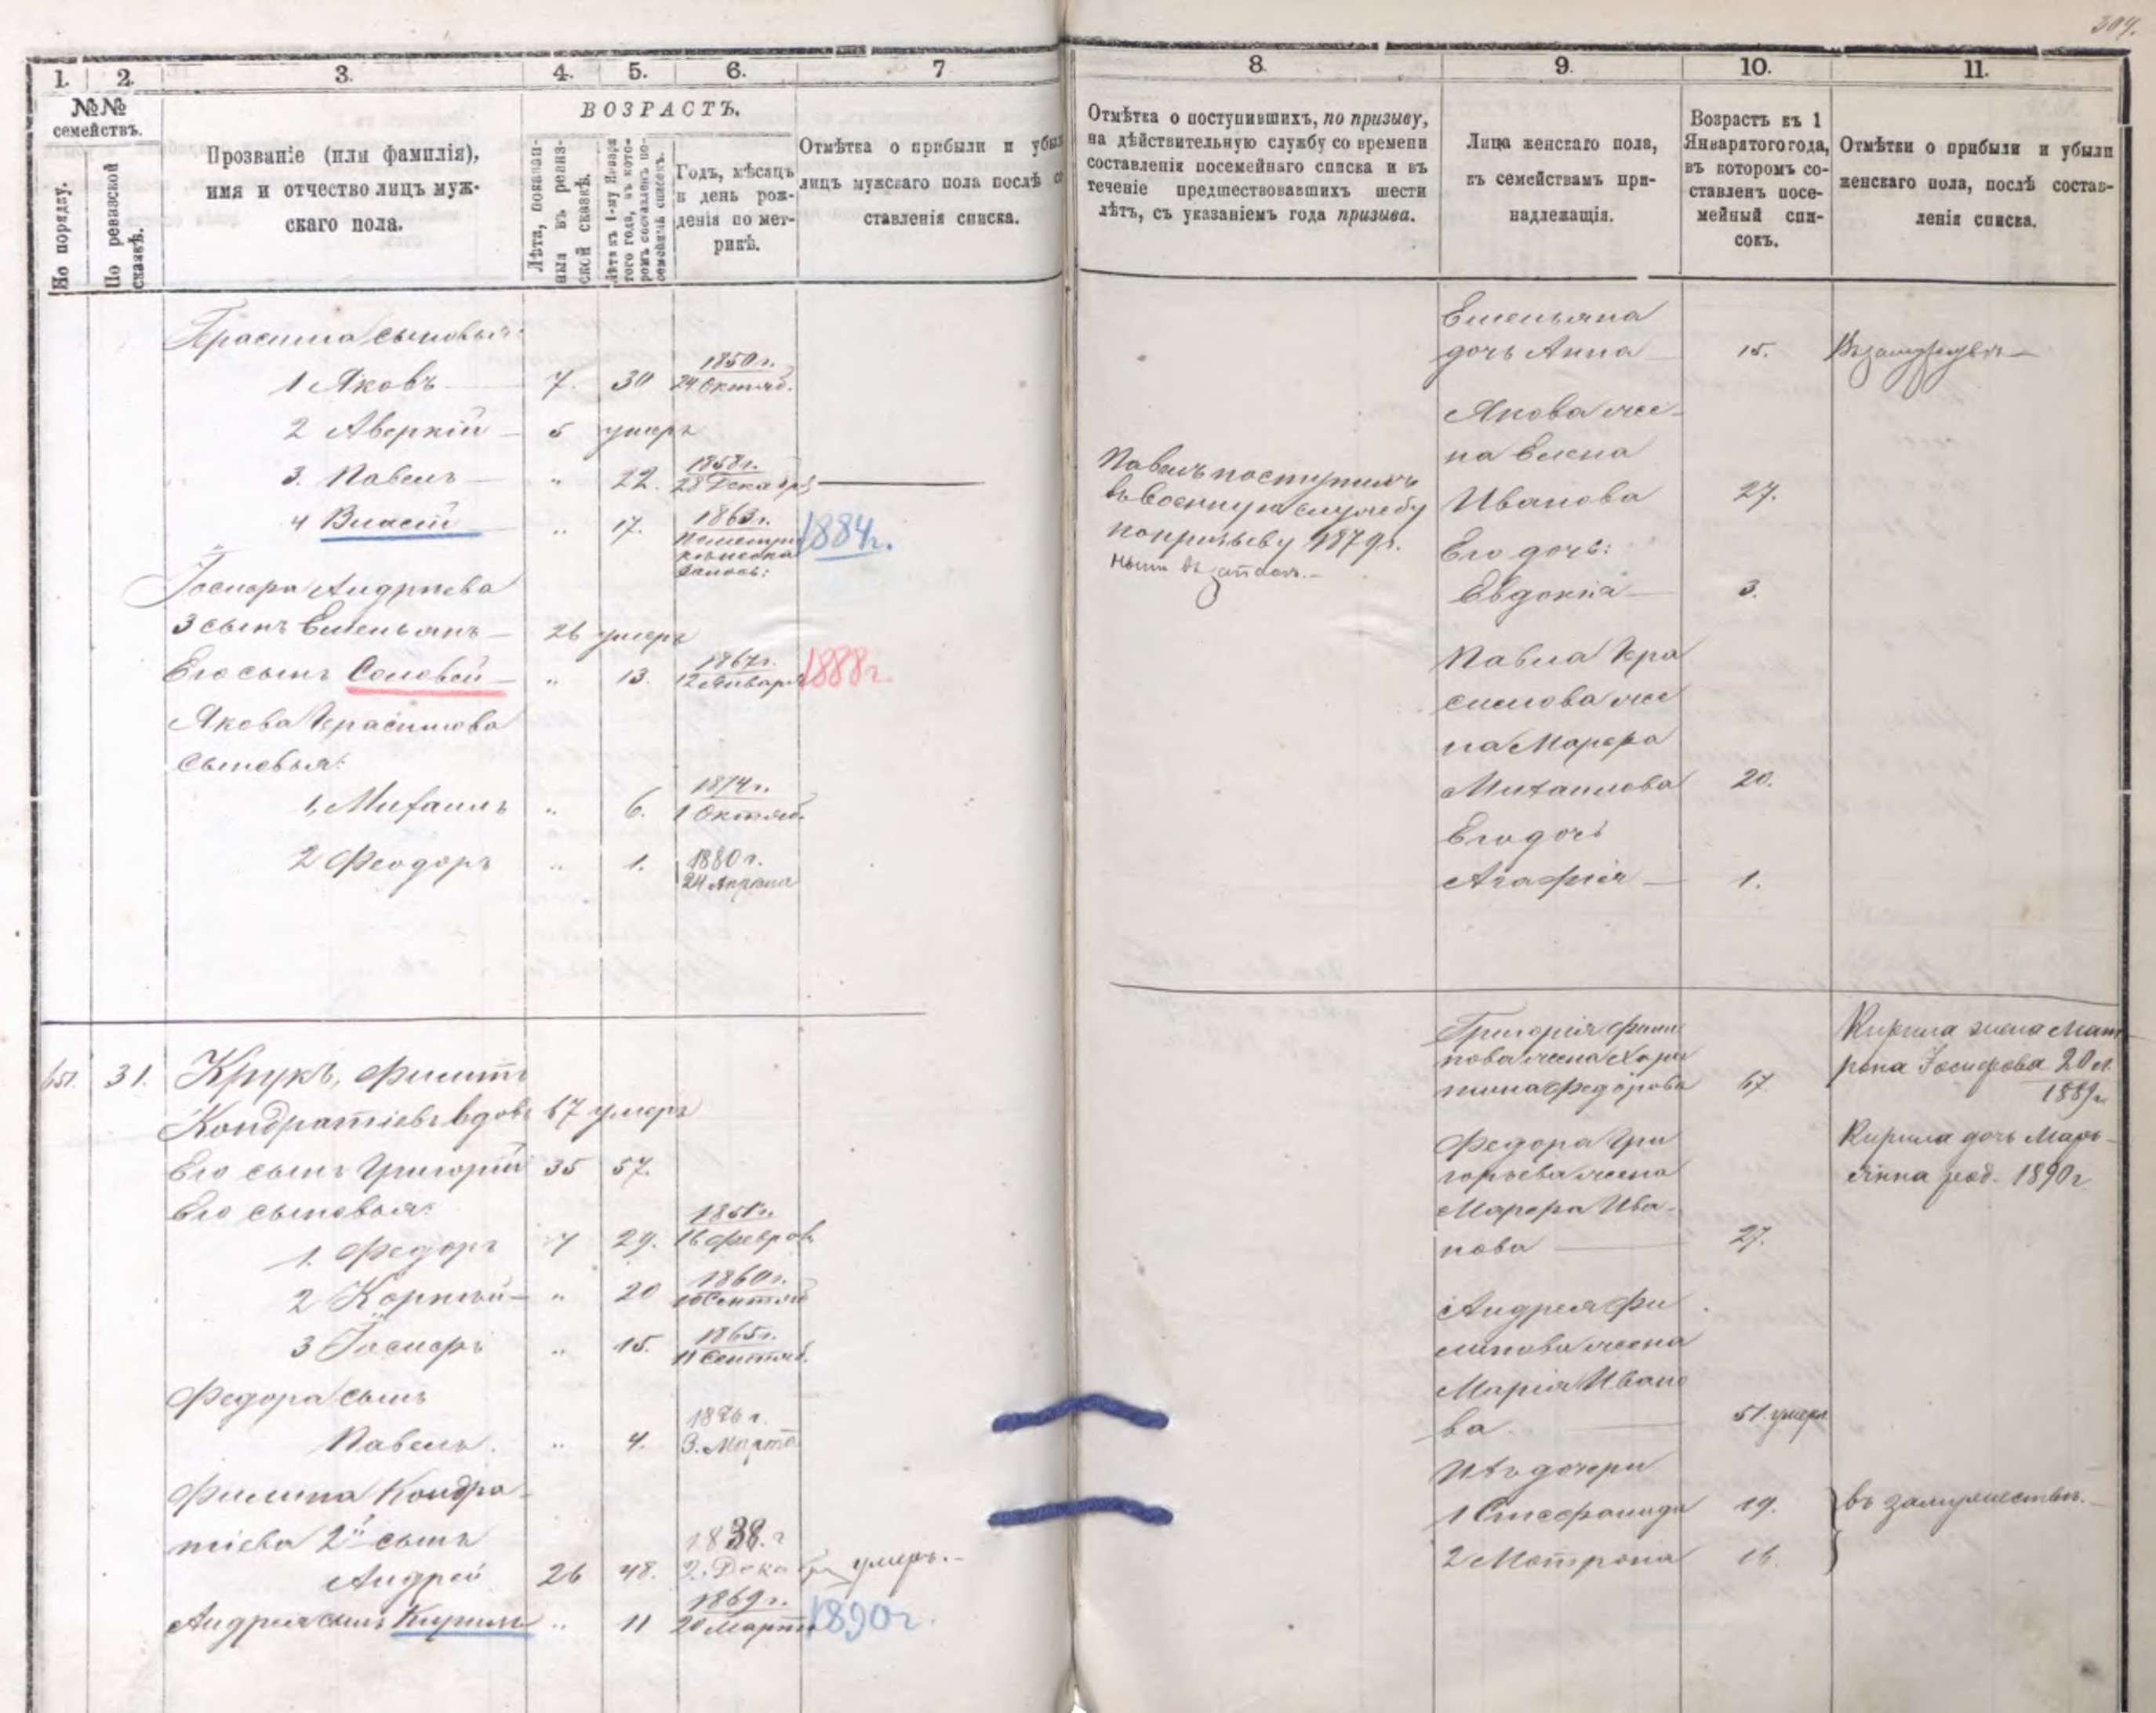 304.
1. 2. 3. 4. 5. 6. 7
№№ семействъ.
По порядку.
По ревизской сказкѣ.
Прозваніе (или фамилія),
имя и отчество лицъ муж-
скаго пола.
ВОЗРАСТЪ.
Лѣта, показан-
ныя въ ревиз-
ской сказкѣ.
Лѣта къ 1-му Января
того года, въ кото-
ромъ составленъ по-
семейный списокъ.
Годъ, мѣсяцъ
и день рож-
денія по мет-
рикѣ.
Отмѣтка о прибыли и убыл
лицъ мужскаго пола послѣ со
ставленія списка.
Герасима сыновья:
1 Яковъ 7. 30 1850 г. 24 Октяб.
2 Аверкій 5 умеръ
3. Павелъ „ 22. 1858 г. 28 Декабр
4 Власій „ 17. 1863 г. 1884 г.
Іосифа Андреева
3 сынъ Емельянъ 26 умеръ
Его сынъ Соловей „ 13. 1867 г. 12 Января 1888 г.
Якова Герасимова
сыновья:
1, Михаилъ „ 6. 1874 г. 1 Октяб.
2 Феодоръ „ 1. 1880 г. 24 Апрѣля
651. 31. Крукъ, Филипъ
Кондратіевъ вдовъ 67 умеръ
Его сынъ Григорій 35 57.
Его сыновья:
1. Федоръ 7 29. 1851 г. 16 Феврал
2 Корнѣй „ 20 1860 г. 10 Сентяб
3 Іосифъ „ 15. 1865 г. 11 Сентяб.
Федора сынъ
Павелъ. „ 4. 1876 г. 3. Марта
Филипа Кондра-
тіева 2й сынъ
Андрей 26 48. 1838. г 2. Декабр умеръ.
Андрея сынъ Кирилъ „ 11 1869 г. 20 Марта 1890 г.
8. 9. 10. 11.
Отмѣтка о поступившихъ, по призыву,
на дѣйствительную службу со времени
составленія посемейнаго списка и въ
теченіе предшествовавшихъ шести
лѣтъ, съ указаніемъ года призыва.
Лица женскаго пола,
къ семействамъ при-
надлежащія.
Возрастъ къ 1
Января того года,
въ которомъ со-
ставленъ посе-
мейный спи-
сокъ.
Отмѣтки о прибыли и убыли
женскаго пола, послѣ состав-
ленія списка.
Емельяна
дочь Анна 15. Въ замужествѣ
Якова же-
на Елена
Иванова 27.
Павелъ поступилъ
въ военную службу
по призыву 1879 г.
Нынѣ въ запасѣ.
Его дочь:
Евдокія 3.
Павла Гера
симова же
на Марфа
Михаилова 20.
Его дочь
Агафія 1.
Григорія Фили
пова жена Хари
тина Федорова 67.
Федора Гри
горьева жена
Марфа Ива-
нова 27.
Андрея Фи
липова жена
Марія Ивано
ва. 51. умерл
Ихъ дочери
1 Стефанида 19.
2 Мотрона 16.
въ замужествѣ.
Кирила жена Мат
рона Іосифова 20 л.
1889 г.
Кирила дочь Марь-
яна род. 1890 г.